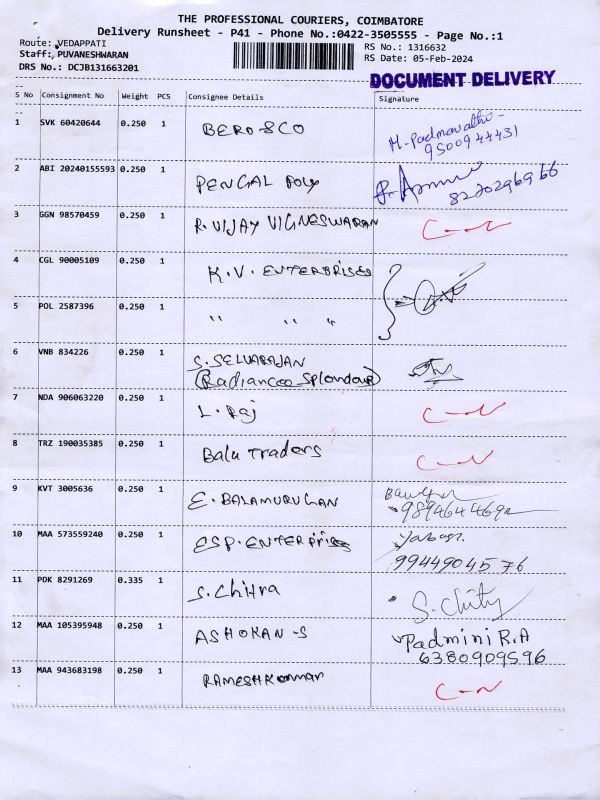 THE PROFESSIONAL COURIERS, COIMBATORE
Delivery Runsheet - P41 - Phone No.:0422-3505555 - Page No.:1
Route: VEDAPPATI
RS No.: 1316632
Staff: PUVANESHWARAN
RS Date: 05-Feb-2024
DRS No.: DCJB131663201
DOCUMENT DELIVERY
S No Consignment No Weight PCS Consignee Details Signature
1 SVK 60420644 0.250 1 BERO & CO M. Padmavathi
9500944431
2 ABI 20240155593 0.250 1 PENGAL Poly
3 GGN 98570459 0.250 1 R. VIJAY VIGNESWARAN
4 CGL 90005109 0.250 1 K.V. ENTERPRISES
5 POL 2587396 0.250 1 " " "
6 VNB 834226 0.250 1 S. SELVARAJAN
(Radiancee Splendour)
7 NDA 906063220 0.250 1 L. Raj
8 TRZ 190035385 0.250 1 Balu Traders
9 KVT 3005636 0.250 1 E. BALAMURUGAN
10 MAA 573559240 0.250 1 ESP. ENTERPRISES
9944904576
11 PDK 8291269 0.335 1 S. Chitra
12 MAA 105395948 0.250 1 ASHOKAN-S Padmini R.A
6380909596
13 MAA 943683198 0.250 1 RAMESH KUMAR